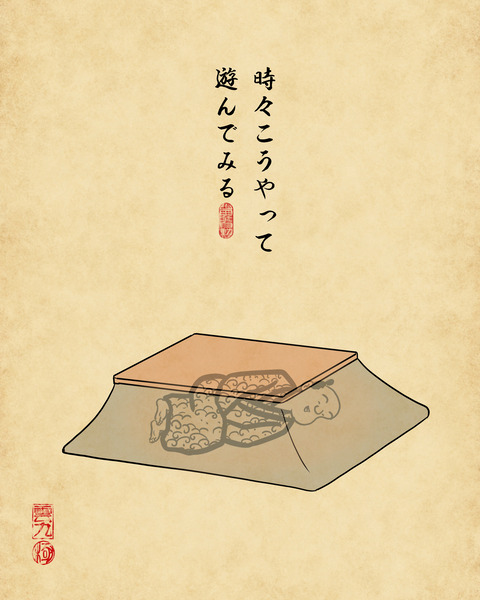 時々こうやって
遊んでみる